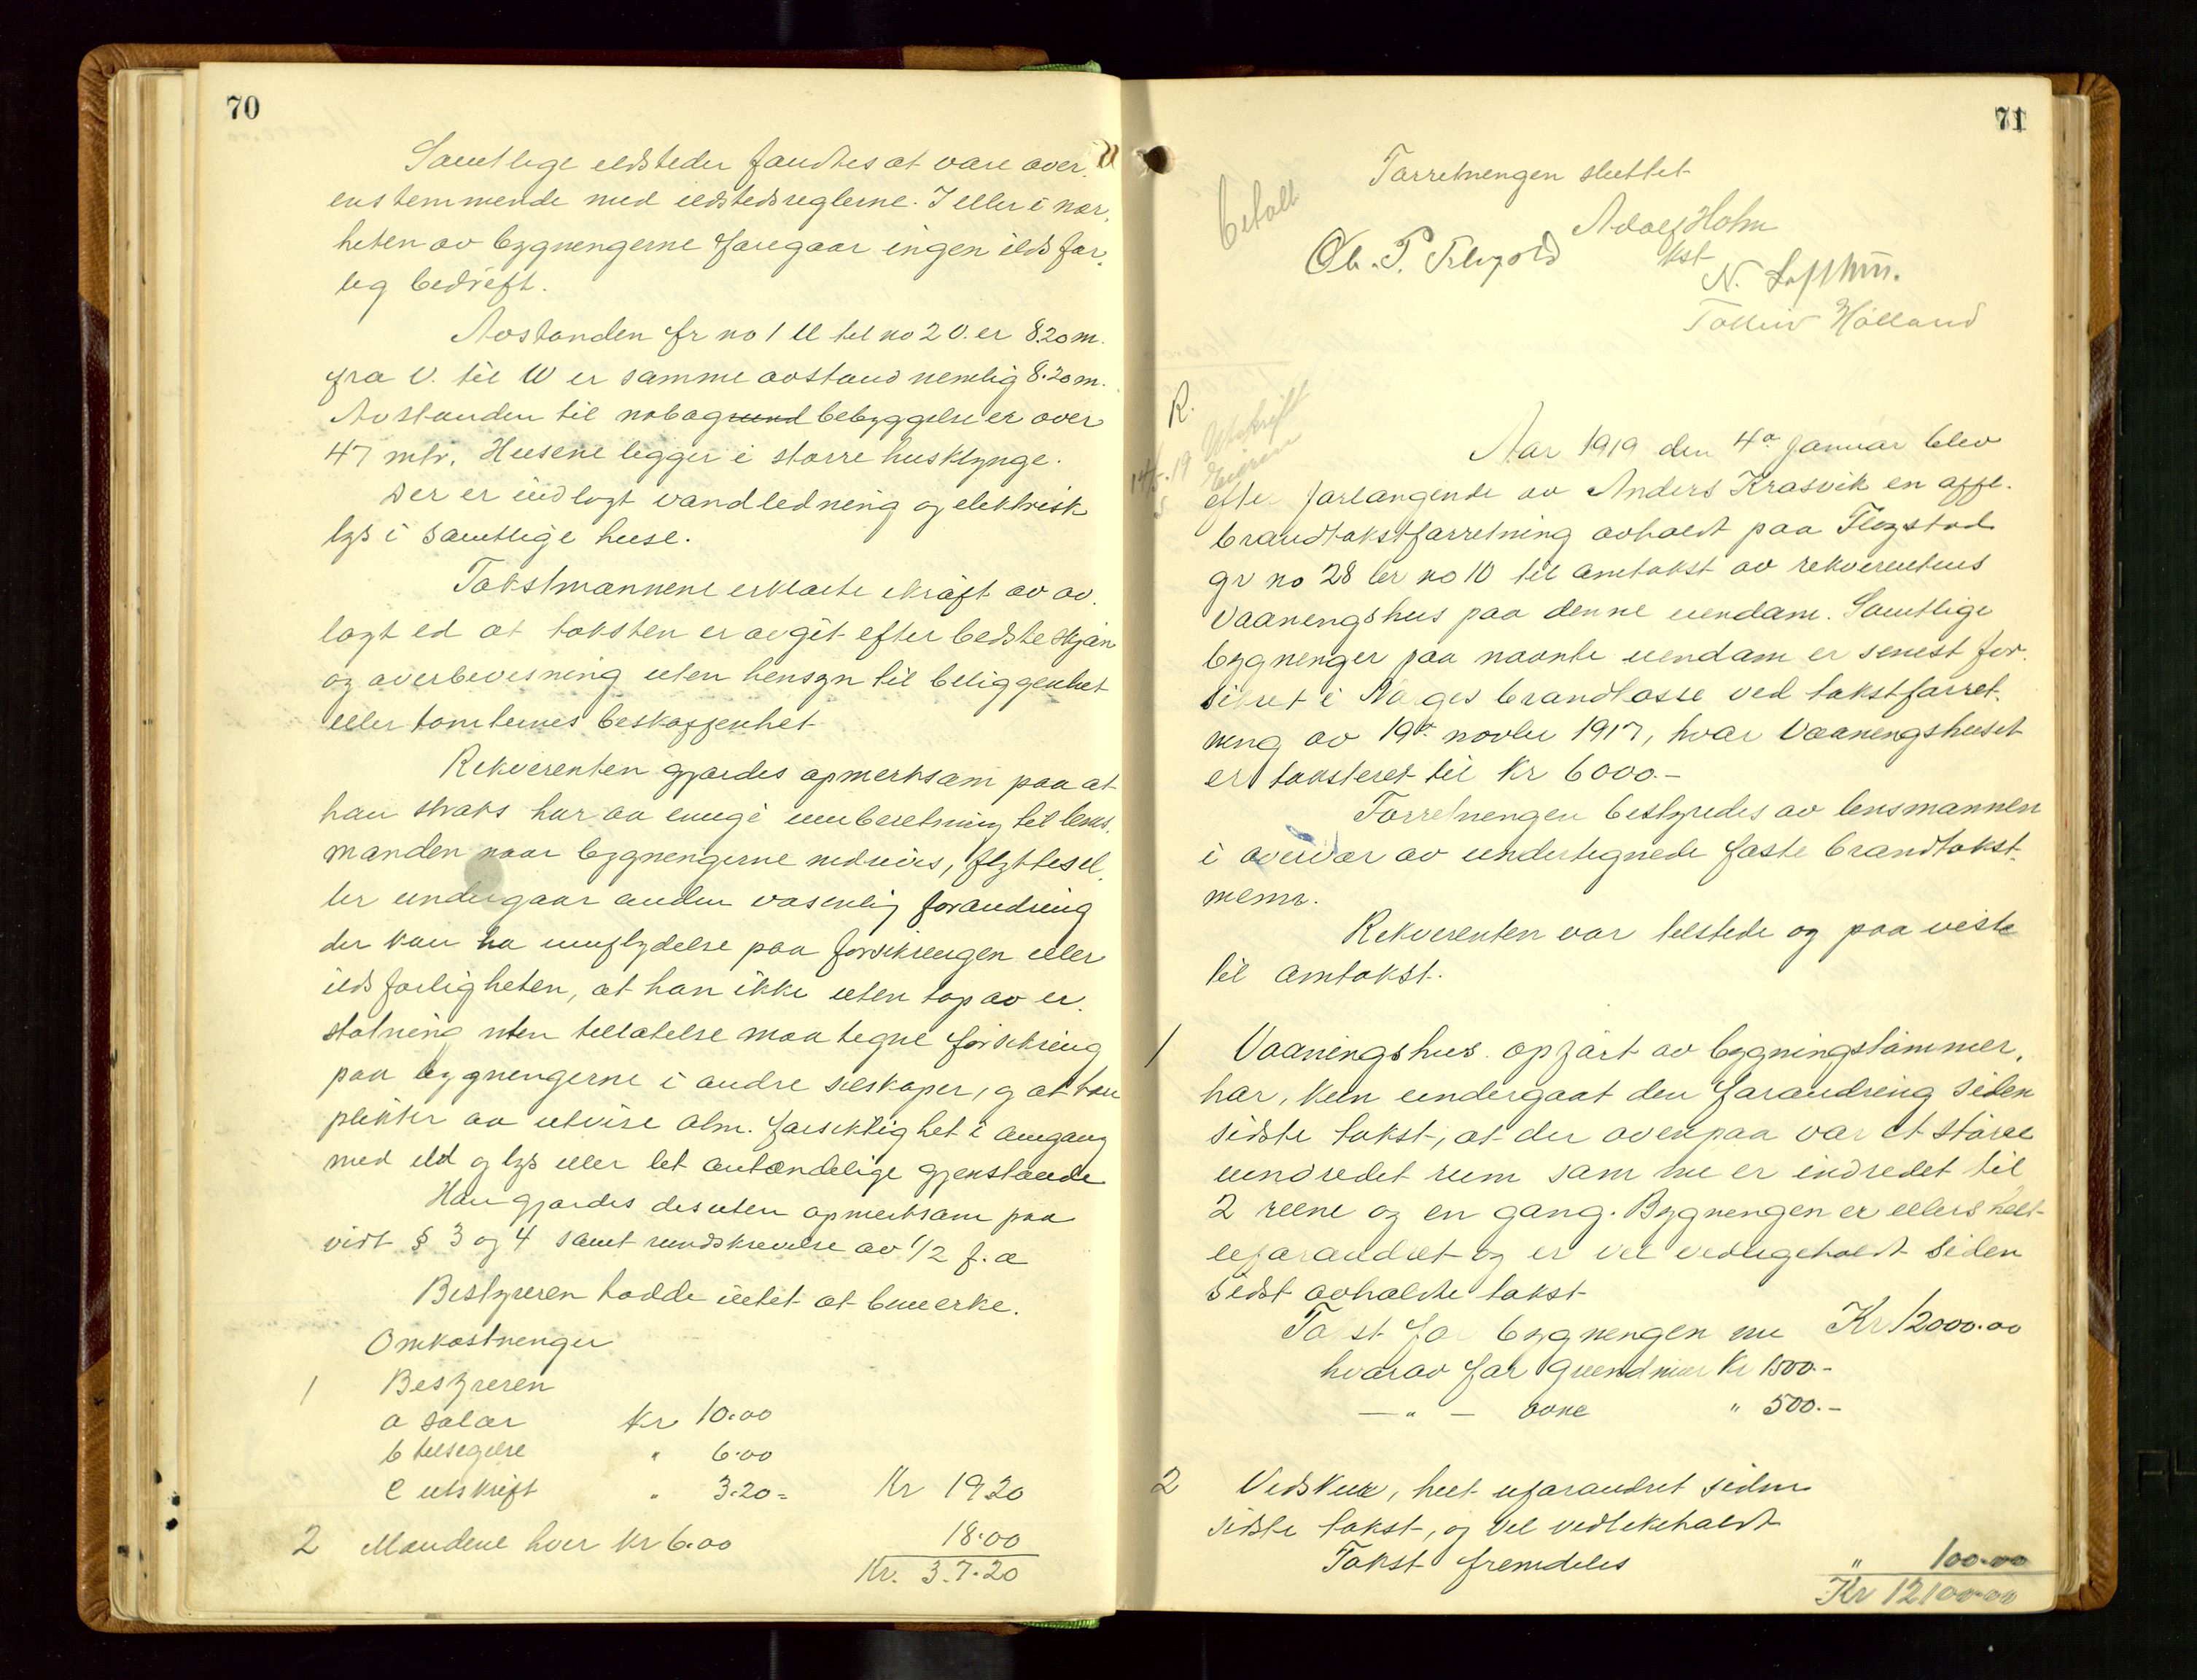 70
Samtlige ildsteder fandtes at være over-
ensstemmende med ildstedsreglerne. I eller i nær-
heten av bygningerne foregaar ingen ildsfar-
lig bedrift.
Avstanden fr no 1 U til no 2 V. er 8.20 m.
fra V. til W er samme avstand nemlig 8.20 m.
Avstanden til nabogrund bebyggelse er over
47 mtr. Husene ligger i større husklynge.
Der er indlagt vandledning og elektrisk
lys i samtlige huse.
Takstmannene erklærte i kraft av av-
lagt ed at taksten er avgit efter bedste skjøn
og overbevisning uten hensyn til beliggenhet
eller tomternes beskaffenhet
Rekverenten gjordes opmerksam paa at
han straks har aa innge innberetning til lens-
manden naar bygningerne nedrives, flyttes el-
ler undergaar anden væsenlig forandring
der kan ha innflydelse paa forsikringen eller
ildsfarligheten, at han ikke uten tap av er-
statning uten tillatelse maa tegne forsikring
paa bygningerne i andre selskaper, og at han
plikter aa utvise alm. forsiktighet i omgang
med ild og lys eller let antændelige gjenstande
Han gjordes desuten opmerksam paa
vidt § 3 og 4 samt rundskrivelse av 1/2 f. a
Bestyreren hadde intet at bemerke.
Omkostninger
1 Bestyreren
a salær kr 10.00
b tilsigelse " 6.00
c utskrift " 3.20 = Kr 19.20
2 Mændene hver kr 6.00 18.00
Kr. 37.20
71
Forretningen sluttet
betalt
Adolf Holm
kst
N.
Tolleiv Hølland
R.
Utskrift
Eieren
Aar 1919 den 4de januar blev
efter forlangende av Anders Krosvik en offl.
brandtakstforretning avholdt paa Flogstad
gr no 28 br no 10 til omtakst av rekverentens
vaaningshus paa denne eiendom. Samtlige
bygninger paa nævnte eiendom er senest for-
sikret i Norges brandkasse ved takstforret-
ning av 19de novbr 1917, hvor vaaningshuset
er taksteret til Kr 6000.-
Forretningen bestyredes av lensmannen
i overvær av undertegnede faste brandtakst-
menn.
Rekverenten var tilstede og paaviste
til omtakst.
1 Vaaningshus. opført av bygningstømmer,
har, kun undergaat den forandring siden
sidste takst, at der ovenpaa var et større
uinredet rum som nu er indredet til
2 rum og en gang. Bygningen er ellers helt
uforandret og er vel vedligeholdt siden
sidst avholdte takst
Takst for bygningen nu Kr 12000.00
hvorav for grundmur Kr 1500.-
- " - ovne " 500.-
2 Vedskur, helt uforandret siden
sidste takst, og vel vedlikeholdt
Takst fremdeles " 100.00
Kr 12100.00